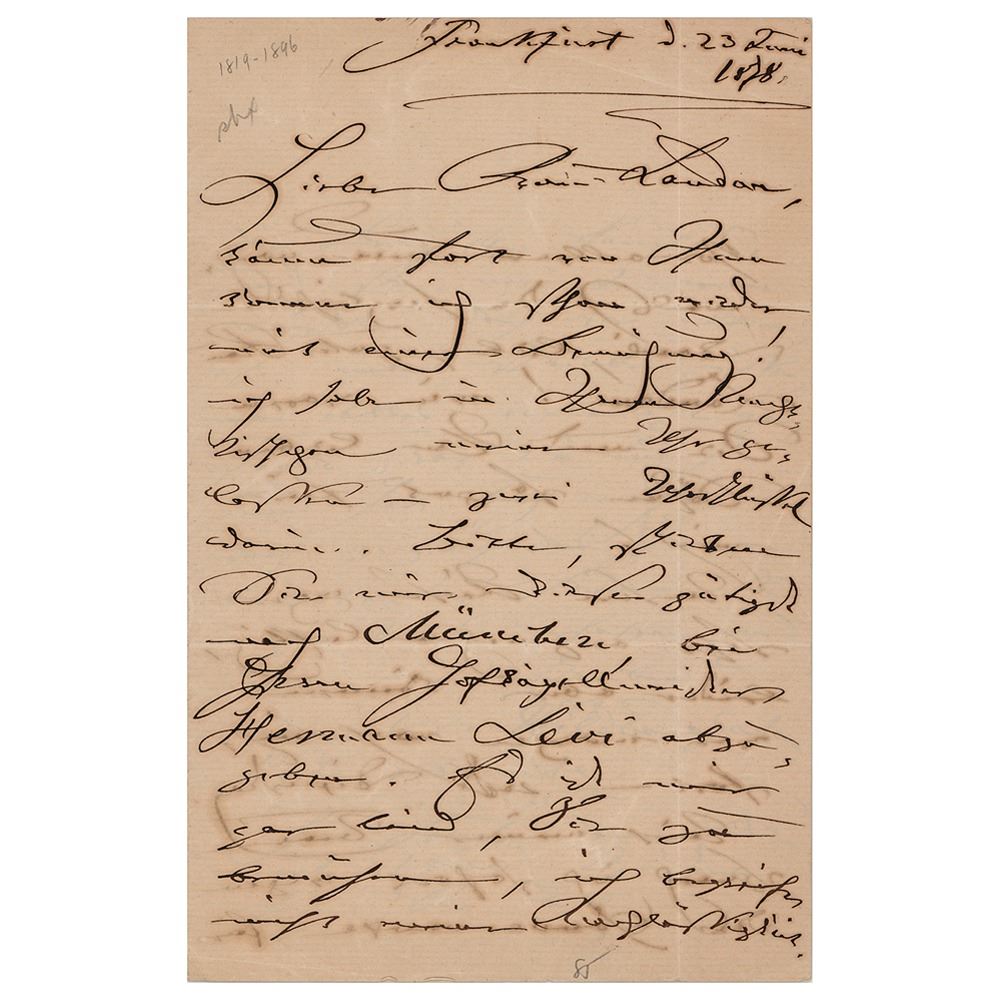 Frankfurt d. 23 Juni
1878.
1819-1896
Liebe Frau Landau,
kaum fort von Ihnen
komme ich schon wieder
mit einer Bemühung!
ich habe in Ihrem Nacht-
tischchen meine Uhr ge-
lassen – zwei Uhrschlüssel
daran. Bitte,
Sie mir dieselbe gütigst
nach München, bei
Herrn Hofkapellmeister
Hermann Levi abzu-
geben. Es ist mir
gar leid, Sie zu
bemühen, ich begreife
nicht meine Nachlässigkeit.
85